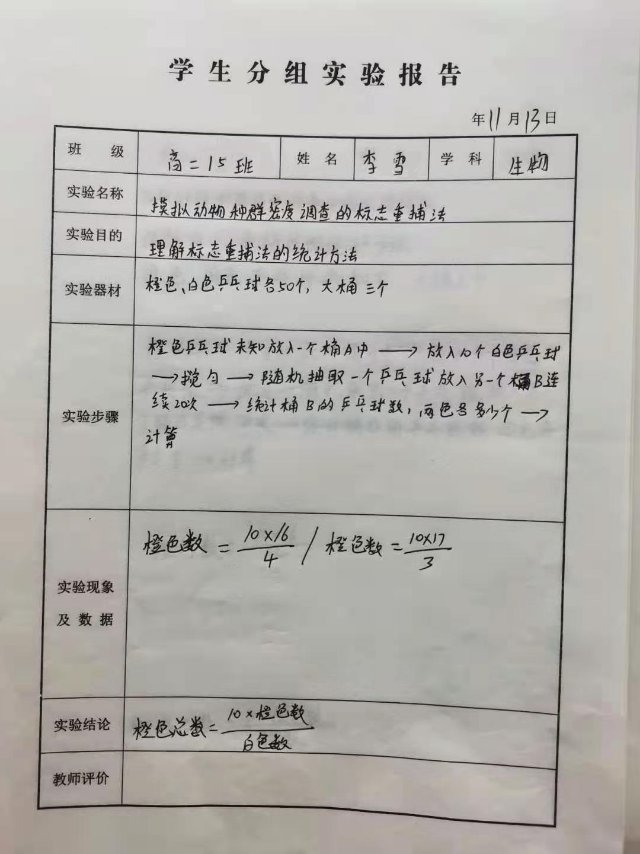 学生分组实验报告
年11月13日
班级 高二15班 姓名 李雪 学科 生物
实验名称 模拟动物种群密度调查的标志重捕法
实验目的 理解标志重捕法的统计方法
实验器材 橙色、白色乒乓球各50个，大桶三个
橙色乒乓球未知放入一个桶A中 → 放入10个白色乒乓球
→ 搅匀 → 随机抽取一个乒乓球放入另一个桶B连
实验步骤 续20次 → 统计桶B的乒乓球数，两色各多少个 →
计算
橙色数 = 10×16/4 / 橙色数 = 10×17/3
实验现象
及数据
实验结论 橙色总数 = 10×橙色数/白色数
教师评价